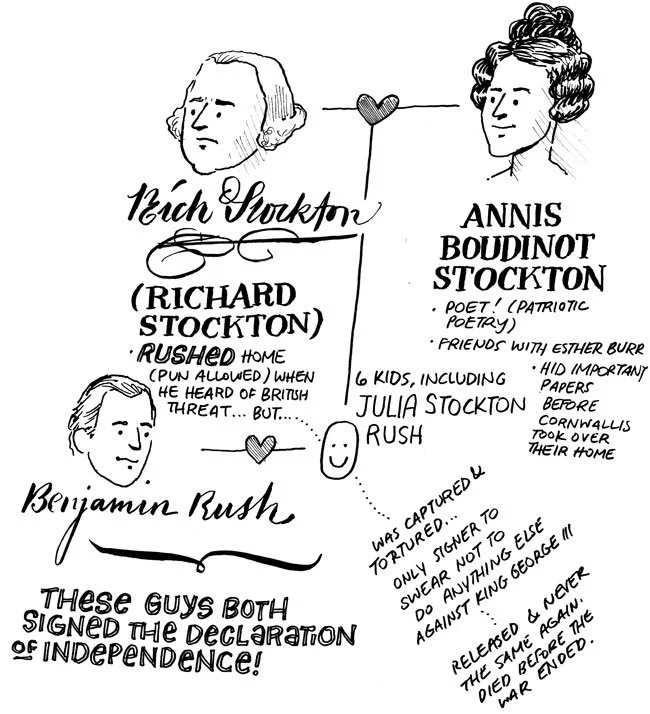 Rich Stockton
(RICHARD
STOCKTON)
• RUSHED HOME
(PUN ALLOWED) WHEN
HE HEARD OF BRITISH
THREAT... BUT...
WAS CAPTURED &
TORTURED...
ONLY SIGNER TO
SWEAR NOT TO
DO ANYTHING ELSE
AGAINST KING GEORGE III
RELEASED & NEVER
THE SAME AGAIN.
DIED BEFORE THE
WAR ENDED.
ANNIS
BOUDINOT
STOCKTON
• POET! (PATRIOTIC
POETRY)
• FRIENDS WITH ESTHER BURR
• HID IMPORTANT
PAPERS
BEFORE
CORNWALLIS
TOOK OVER
THEIR HOME
6 KIDS, INCLUDING
JULIA STOCKTON
RUSH
Benjamin Rush
THESE GUYS BOTH
SIGNED THE DECLARATION
OF INDEPENDENCE!